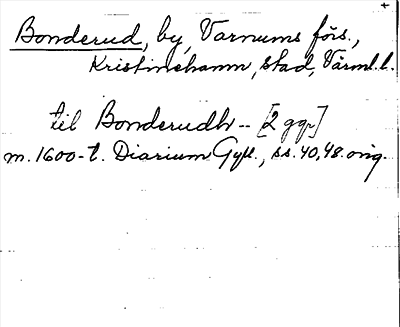 Bonderud, by, Varnums förs.,
Kristinehamn, stad, Värml. l.
til Bonderudh -- [2 ggr]
m. 1600-t. Diarium Gyll., ss. 40, 48. orig.